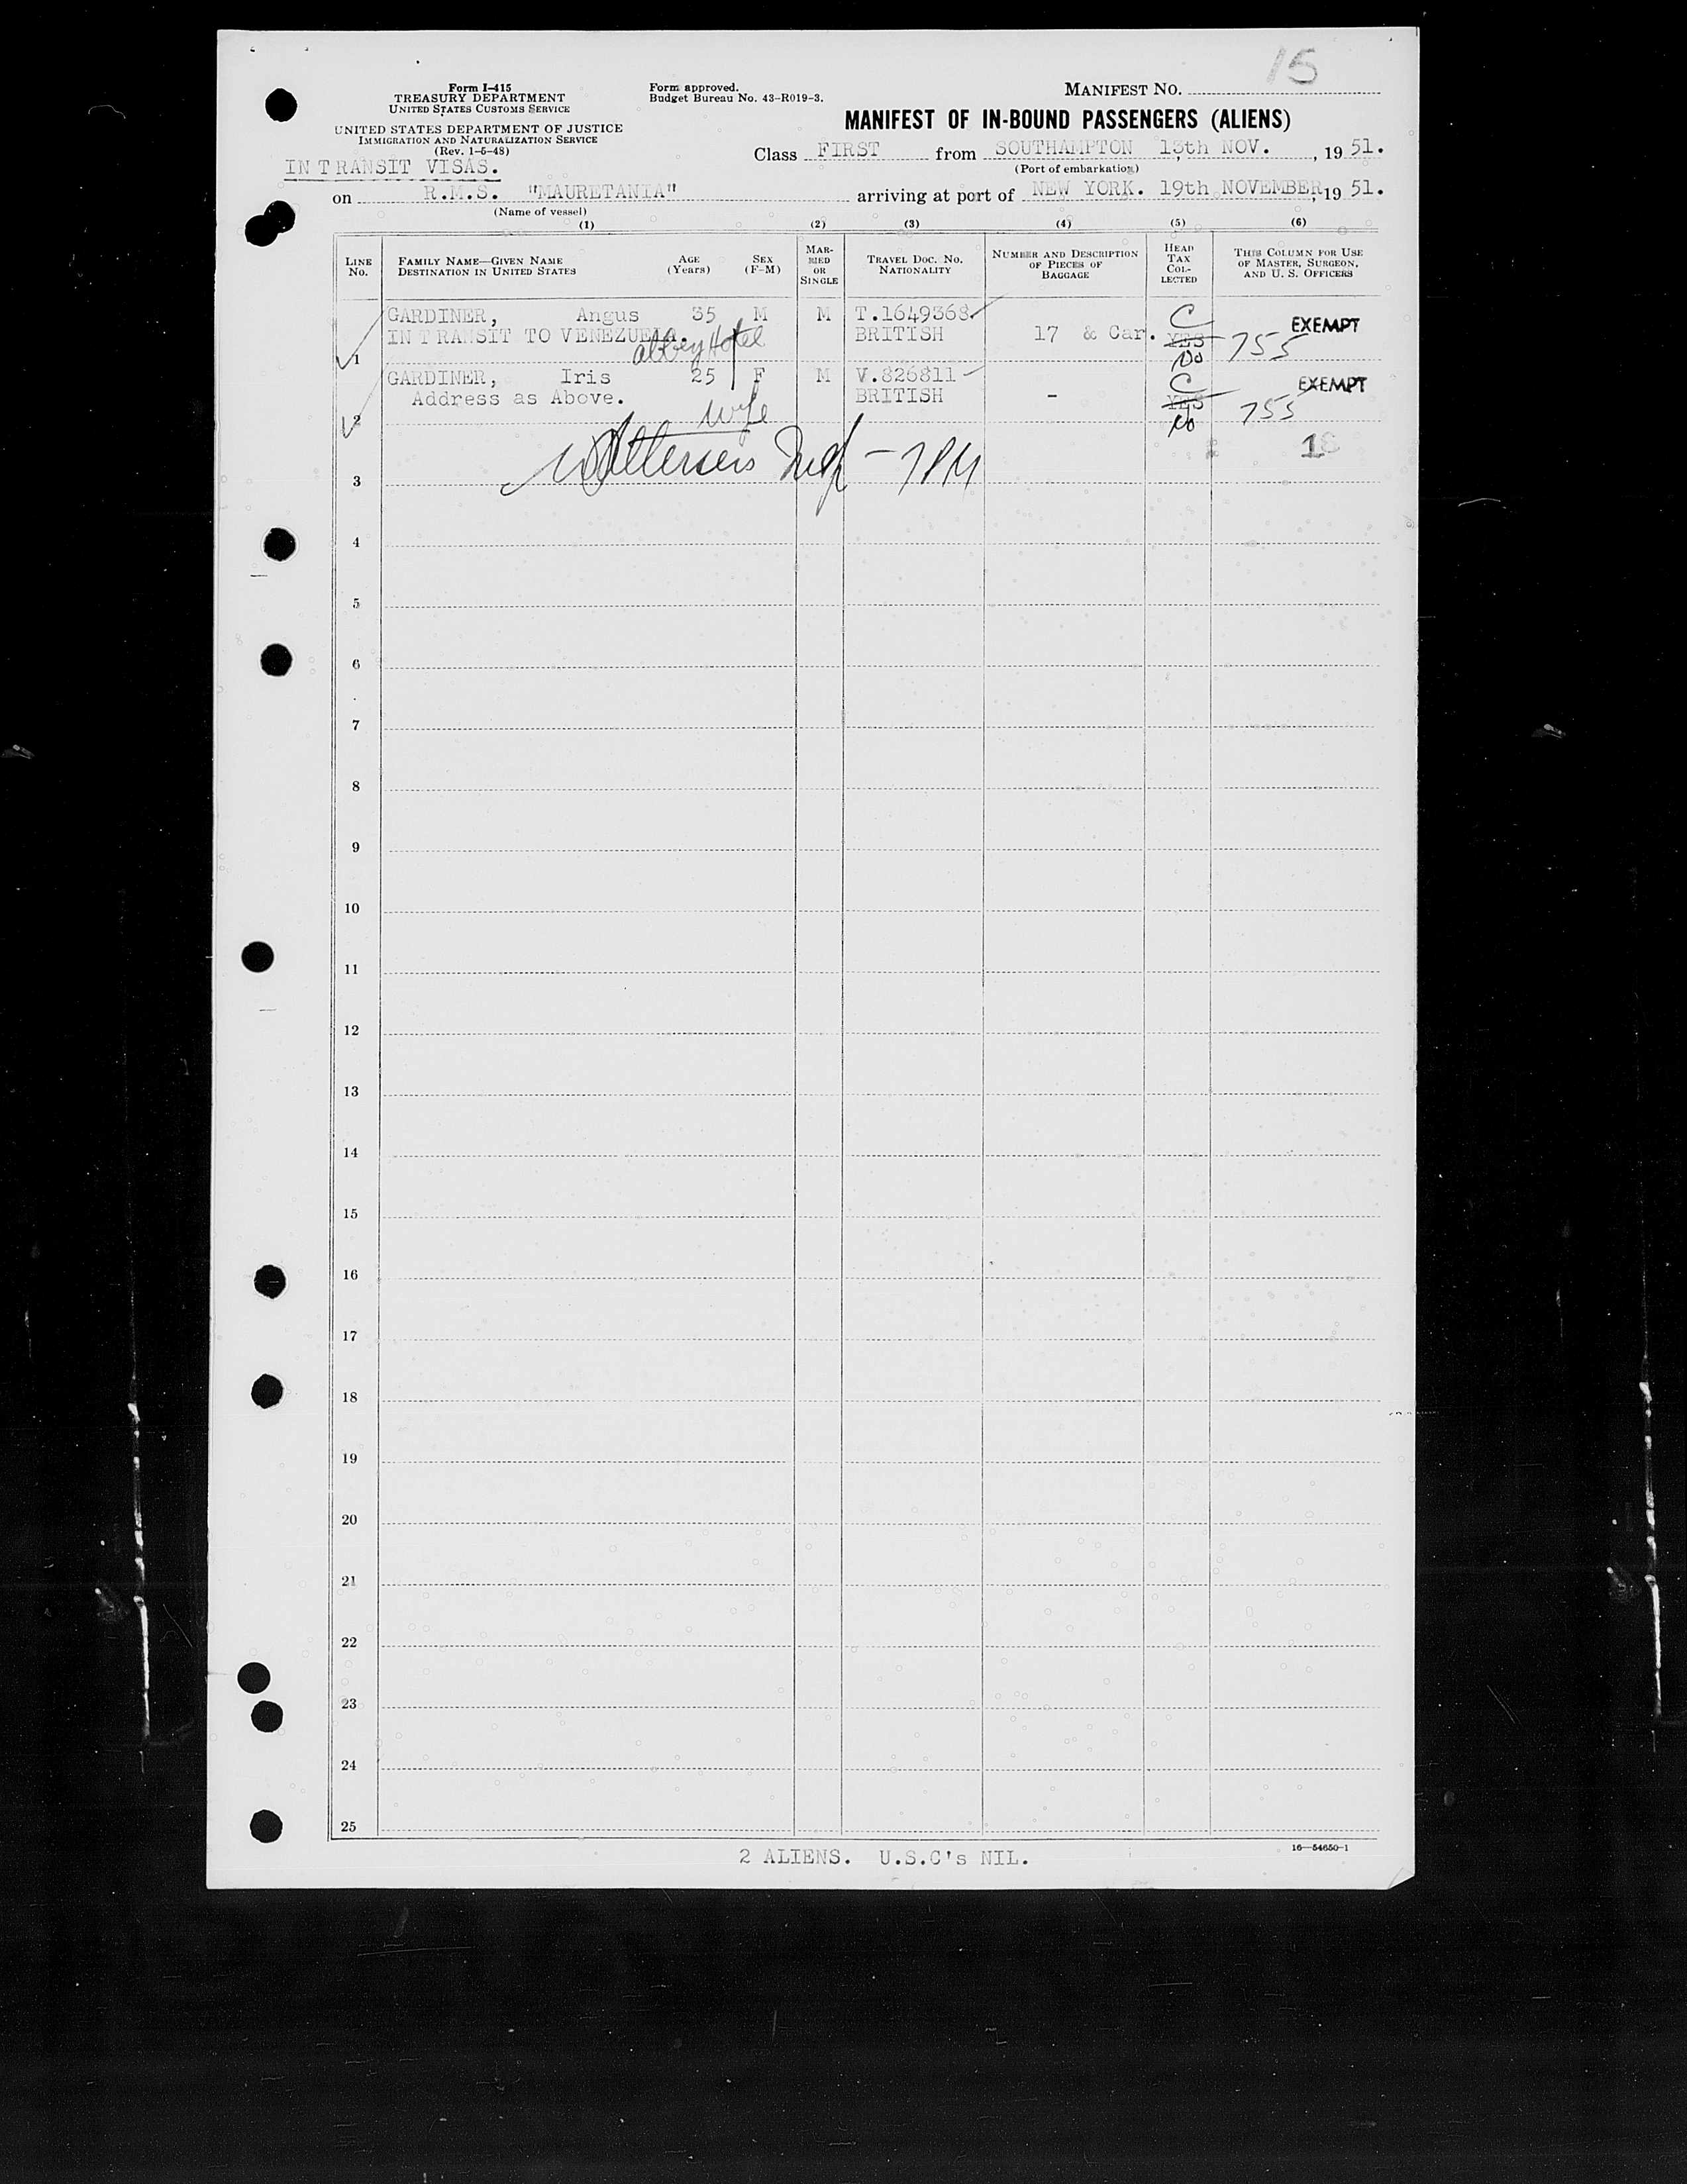 15
Form I-415
TREASURY DEPARTMENT
UNITED STATES CUSTOMS SERVICE
UNITED STATES DEPARTMENT OF JUSTICE
IMMIGRATION AND NATURALIZATION SERVICE
(Rev. 1-5-48)
IN TRANSIT VISAS.
Form approved.
Budget Bureau No. 43-R019-3.
MANIFEST NO.
MANIFEST OF IN-BOUND PASSENGERS (ALIENS)
Class FIRST from SOUTHAMPTON 13th NOV. , 19 51.
(Port of embarkation)
on R.M.S. "MAURETANIA" arriving at port of NEW YORK. 19th NOVEMBER, 19 51.
(Name of vessel)
(1) (2) (3) (4) (5) (6)
LINE No. FAMILY NAME—GIVEN NAME DESTINATION IN UNITED STATES AGE (Years) SEX (F-M) MARRIED OR SINGLE TRAVEL DOC. NO. NATIONALITY NUMBER AND DESCRIPTION OF PIECES OF BAGGAGE HEAD TAX COLLECTED THIS COLUMN FOR USE OF MASTER, SURGEON, AND U. S. OFFICERS
GARDINER, Angus 35 M M T.1649368 C EXEMPT
IN TRANSIT TO VENEZUELA. BRITISH 17 & Car. YES 755
1 Abbey Hotel No
GARDINER, Iris 25 F M V.826811 C EXEMPT
Address as Above. BRITISH - YES 755
2 wife No
18
3
4
5
6
7
8
9
10
11
12
13
14
15
16
17
18
19
20
21
22
23
24
25
16—54650-1
2 ALIENS. U.S.C's NIL.